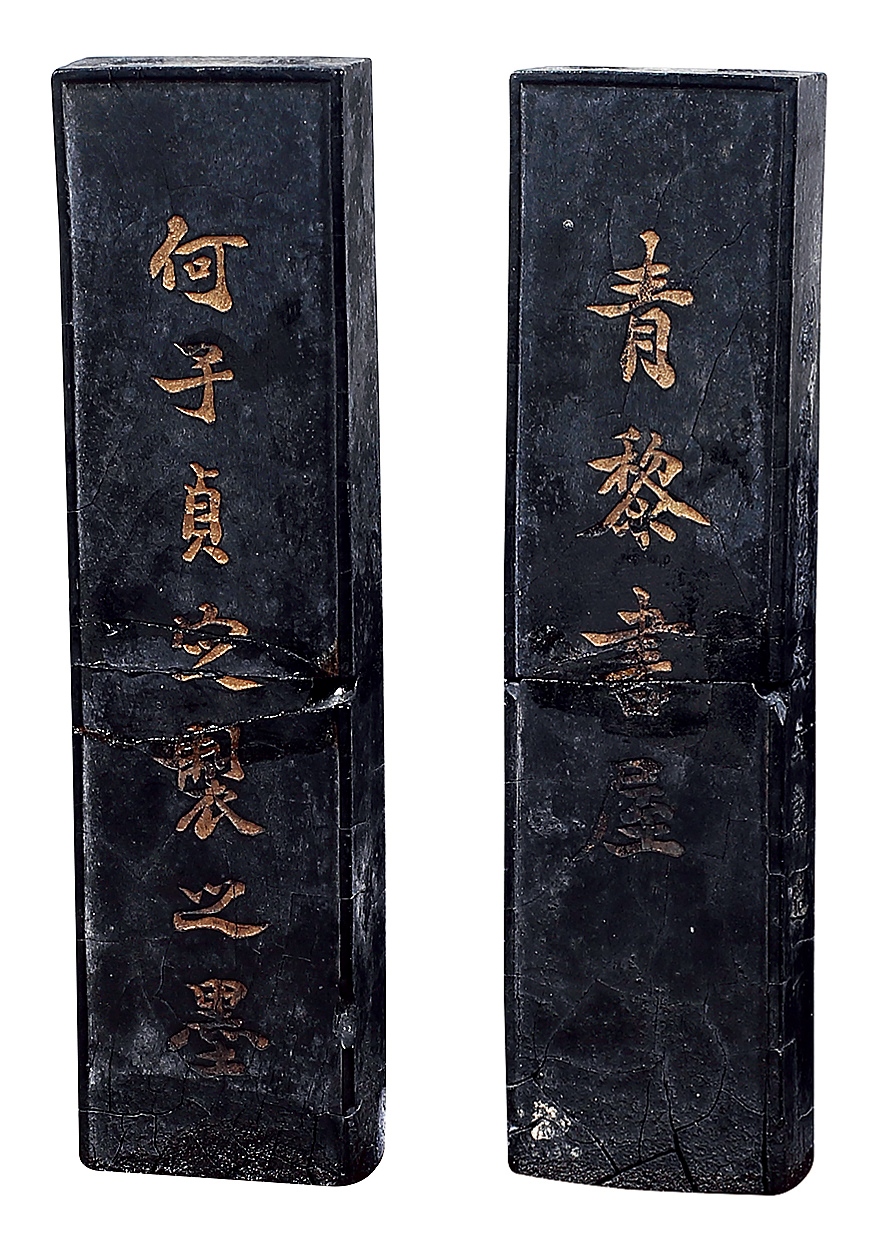 青黎書屋
何子貞定製之墨